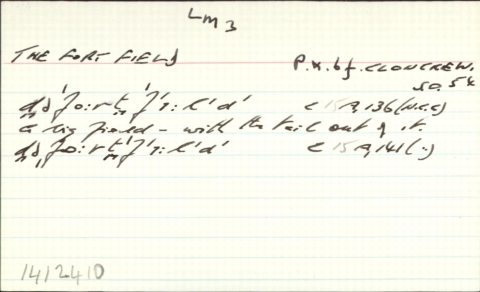 Lm 3
THE FORT FIELD
P.X. bf. CLONCREW.
SO. 54
d̪ə 'fo:rt̪ 'f'i:l'd' c 15 A, 136 (N.C.C)
a big field - with the tail out of it.
d̪ə 'fo:rt̪ 'f'i:l'd' c 15 A, 141 (:)
1412410